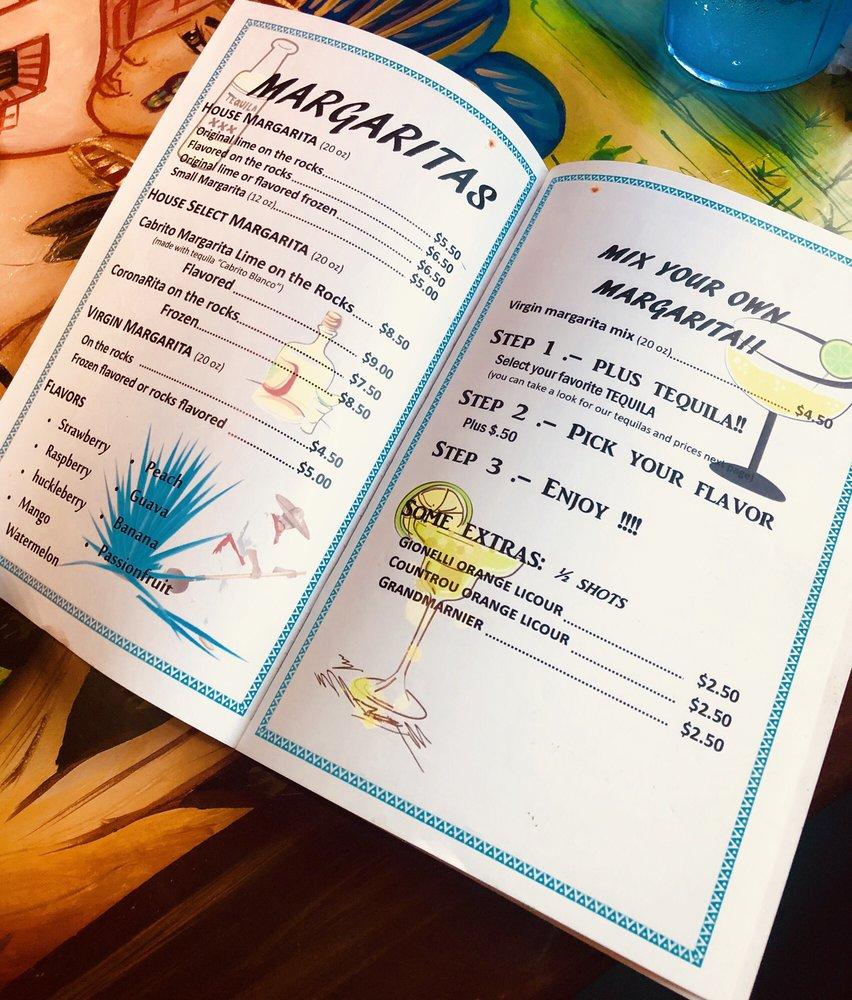 TEQUILA
XXX
MARGARITAS
HOUSE MARGARITA (20 oz)
Original lime on the rocks........ $5.50
Flavored on the rocks........ $6.50
Original lime or flavored frozen........ $6.50
Small Margarita (12 oz)........ $5.00
HOUSE SELECT MARGARITA (20 oz)
Cabrito Margarita Lime on the Rocks .... $8.50
(made with tequila "Cabrito Blanco")
Flavored........ $9.00
CoronaRita on the rocks........ $7.50
Frozen........ $8.50
VIRGIN MARGARITA (20 oz)
On the rocks ........ $4.50
Frozen flavored or rocks flavored ........ $5.00
FLAVORS
• Strawberry
• Raspberry
• huckleberry
• Mango
Watermelon
• Peach
• Guava
• Banana
• Passionfruit
MIX YOUR OWN
MARGARITA!!
Virgin margarita mix (20 oz)........ $4.50
STEP 1 .- PLUS TEQUILA!!
Select your favorite TEQUILA
(you can take a look for our tequilas and prices next page)
STEP 2 .- PICK YOUR FLAVOR
Plus $.50
STEP 3 .- ENJOY !!!!
SOME EXTRAS: ½ SHOTS
GIONELLI ORANGE LICOUR ........ $2.50
COUNTROU ORANGE LICOUR ........ $2.50
GRANDMARNIER ........ $2.50